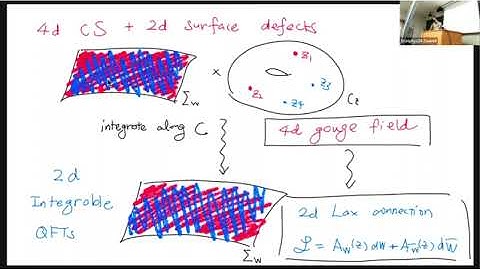 4d CS + 2d surface defects
z₁
z₂
z₃
z₄
×
Σ_w
C_z
integrate along C
4d gauge field
2d
Integrable
QFTs
Σ_w
2d Lax connection
ℒ = A_w(z) dw + A_w̄(z) dw̄